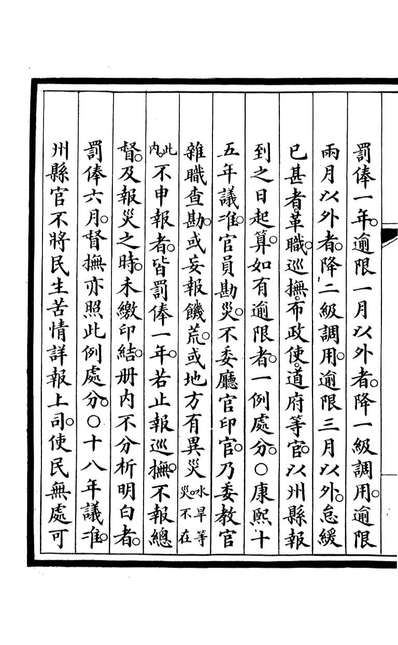 罰俸一年。逾限一月以外者。降一級調用。逾限
兩月以外者。降二級調用。逾限三月以外。怠緩
已甚者革職。巡撫。布政使。道府等官。以州縣報
到之日起算。如有逾限者。一例處分。〇康熙十
五年議准。官員勘災。不委廳官印官。乃委教官
雜職查勘。或妄報饑荒。或地方有異災水旱等災。不在
此內。不申報者。皆罰俸一年。若止報巡撫。不報總
督。及報災之時。未繳印結。册內不分析明白者。
罰俸六月。督撫亦照此例處分。〇十八年議准。
州縣官不將民生苦情詳報上司。使民無處可